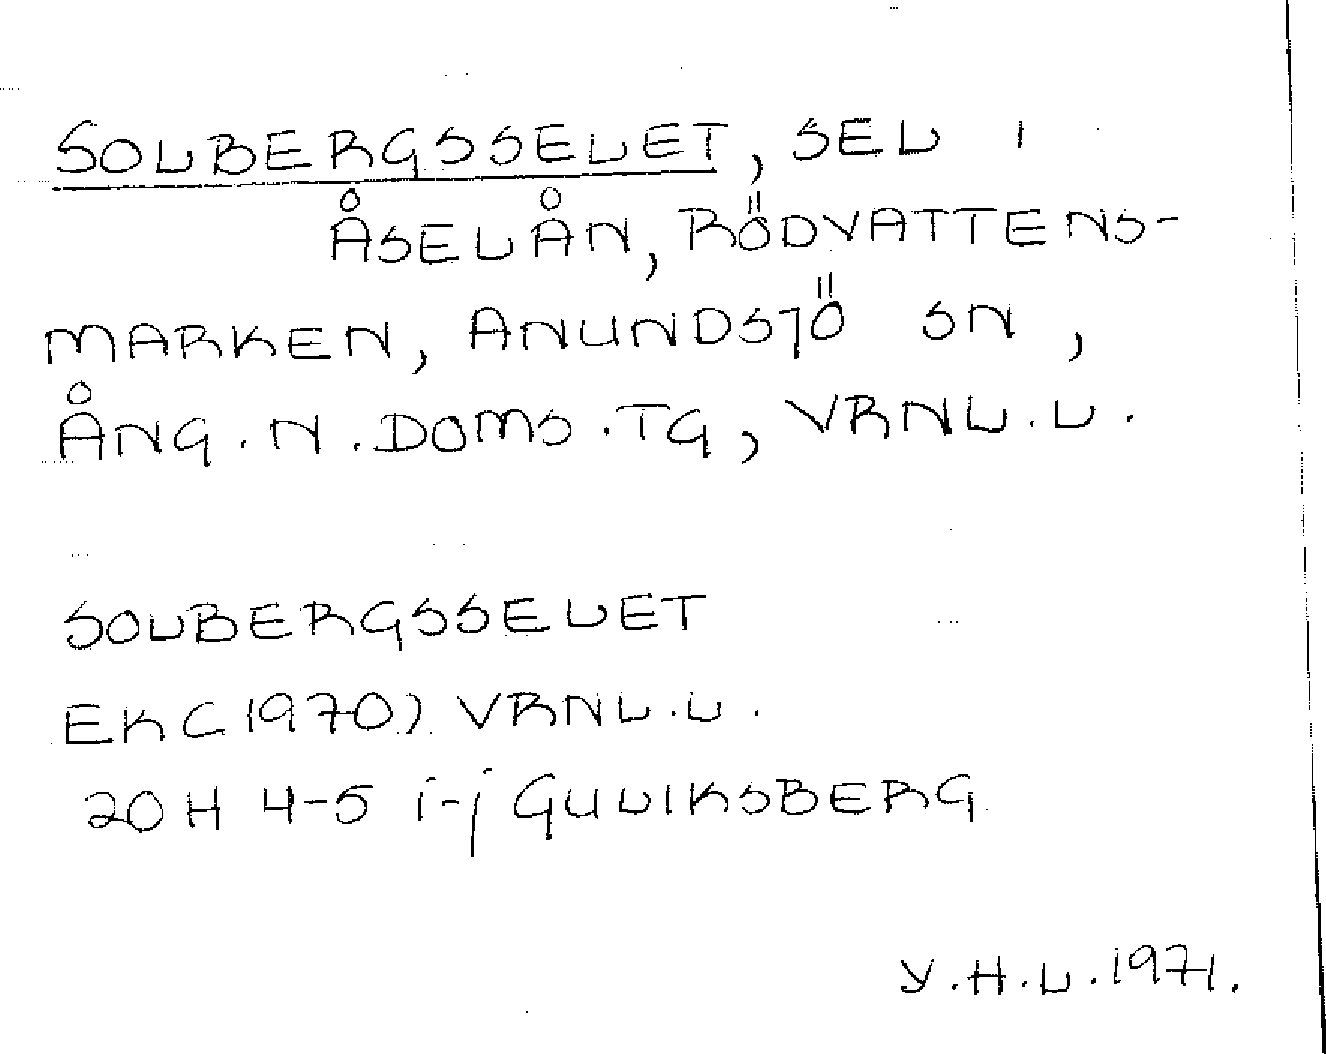 SOLBERGSSELET, SEL I
ÅSELÅN, RÖDVATTENS-
MARKEN, ANUNDSJÖ SN,
ÅNG.N.DOMS.TG, VRNL.L.
SOLBERGSSELET
EK (1970) VRNL.L.
20 H 4-5 i-j GULIKSBERG
Y.H.L.1971.